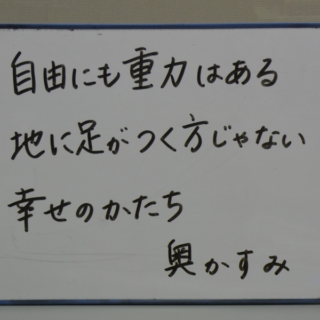 自由にも重力はある
地に足がつく方じゃない
幸せのかたち
奥かすみ